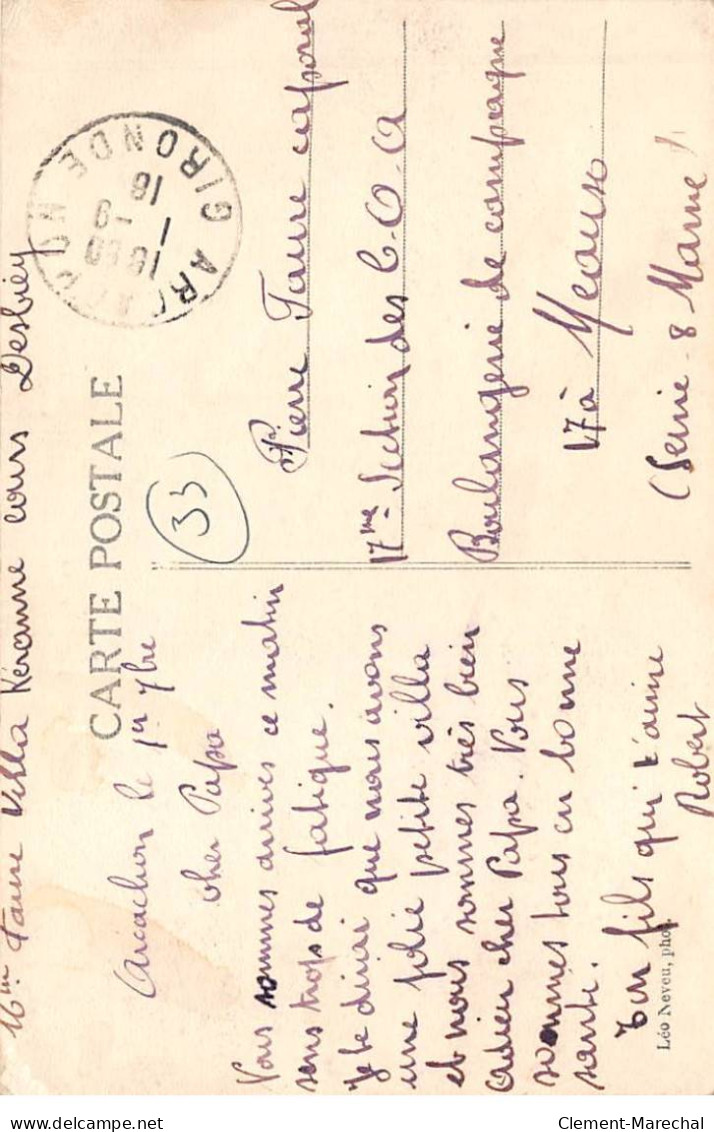 Mme Faure Villa Kéranne cours Desbiey
CARTE POSTALE
Arcachon le 1er 7bre
Cher Papa
Nous sommes arrivés ce matin
sens trops de fatigue.
Je te dirai que nous avons
une jolie petite villa
et nous sommes très bien
Adieu cher Papa. Nous
sommes tous en bonne
santé.
Ton fils qui t'aime
Robert
Léo Neveu, phot.
33
ARCACHON GIRONDE
1 - 9
18
Pierre Faure caporal
17me Section des C.O.A
Boulangerie de campagne
17 à Meaux
(Seine & Marne)
delcampe.net
Clement-Marechal